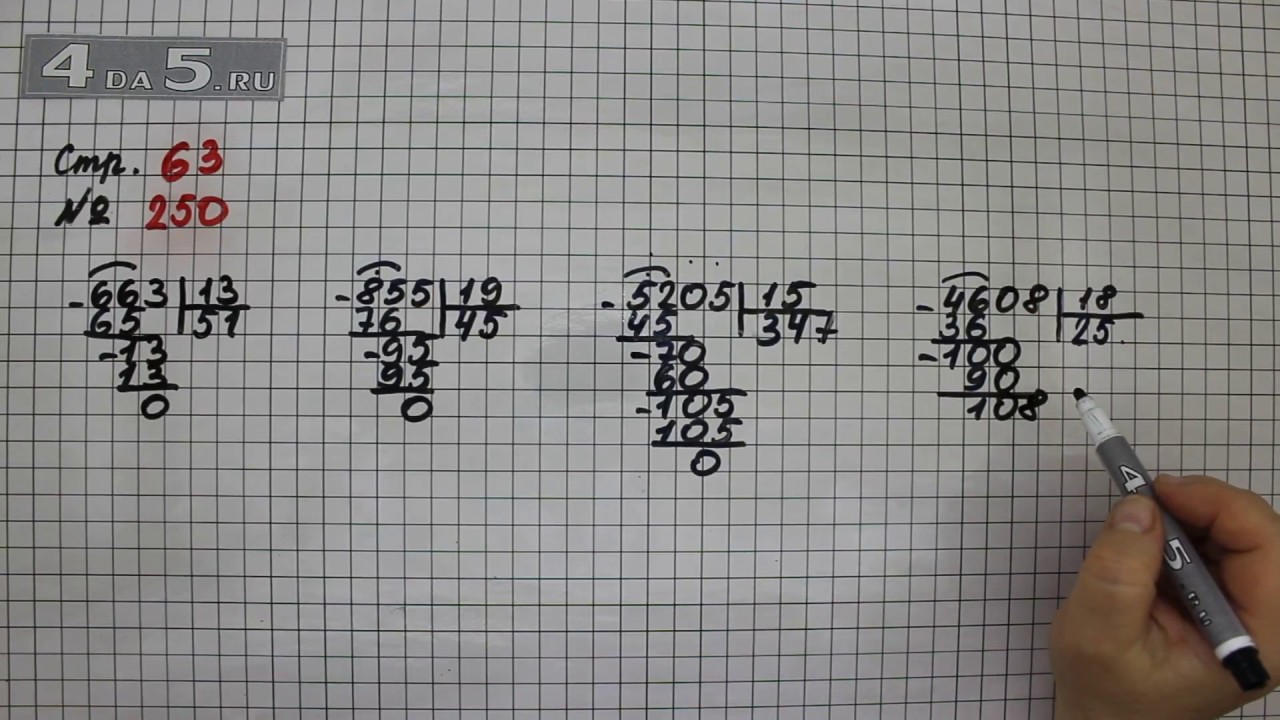 4 DA 5.RU
Стр. 63
№ 250
-663 | 13
65 | 51
-13
13
0
-855 | 19
76 | 45
-95
95
0
-5205 | 15
45 | 347
-70
60
-105
105
0
-4608 | 18
36 | 25
-100
90
108
4
5